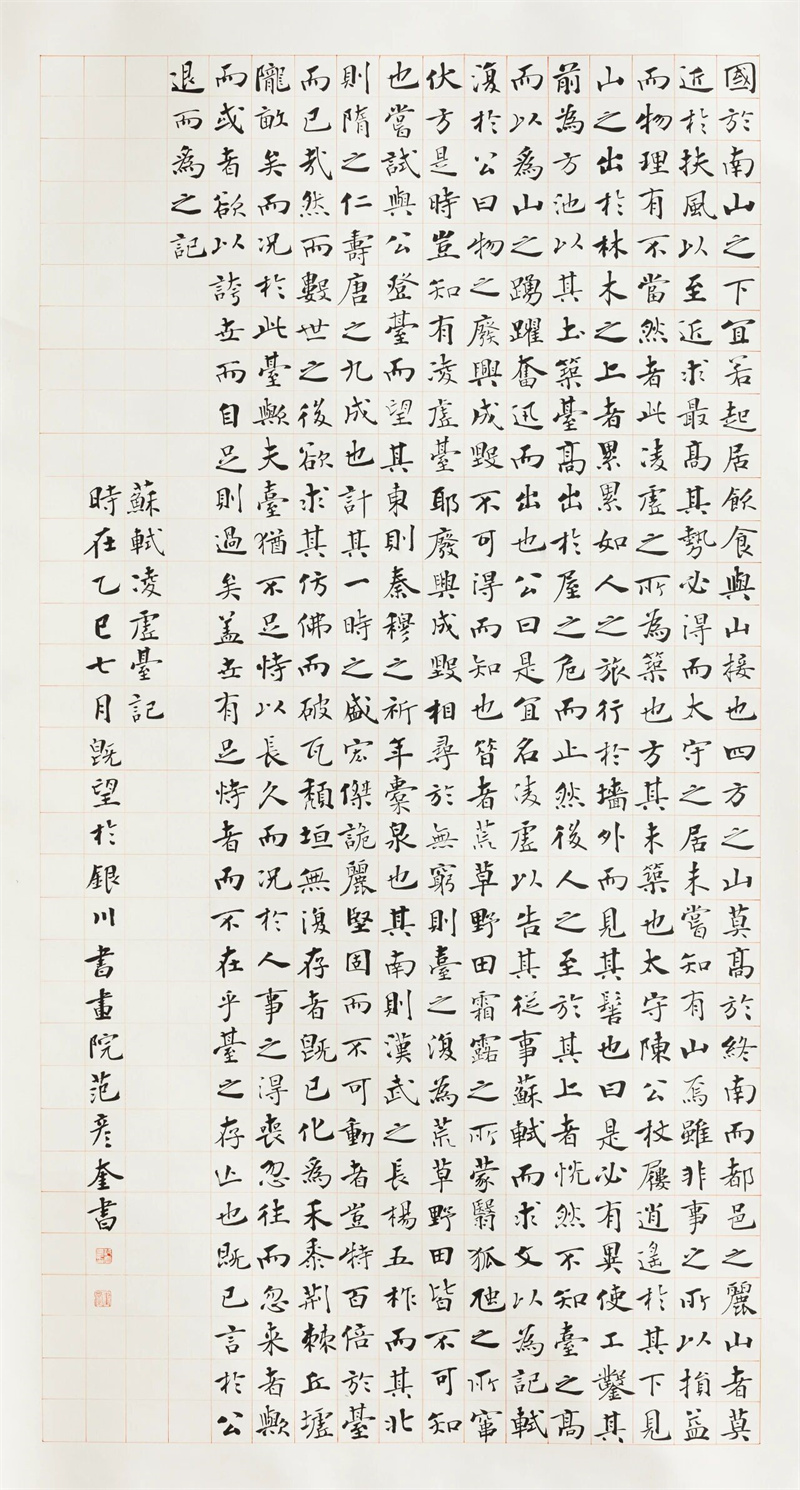 國於南山之下宜若起居飲食與山接也四方之山莫高於終南而都邑之麗山者莫
近於扶風以至近求最高其勢必得而太守之居未嘗知有山焉雖非事之所以損益
而物理有不當然者此凌虛之所為築也方其未築也太守陳公杖屨逍遙於其下見
山之出於林木之上者累累如人之旅行於墻外而見其髻也曰是必有異使工鑿其
前為方池以其土築臺高出於屋之危而止然後人之至於其上者恍然不知臺之高
而以爲山之踴躍奮迅而出也公曰是宜名凌虛以告其從事蘇軾而求文以為記軾
復於公曰物之廢興成毀不可得而知也昔者荒草野田霜露之所蒙翳狐虺之所竄
伏方是時豈知有凌虛臺耶廢興成毀相尋於無窮則臺之復為荒草野田皆不可知
也嘗試與公登臺而望其東則秦穆之祈年橐泉也其南則漢武之長楊五柞而其北
則隋之仁壽唐之九成也計其一時之盛宏傑詭麗堅固而不可動者豈特百倍於臺
而已哉然而數世之後欲求其仿佛而破瓦頹垣無復存者既已化爲禾黍荊棘丘墟
隴畝矣而况於此臺歟夫臺猶不足恃以長久而况於人事之得喪忽往而忽来者歟
而或者欲以誇世而自足則過矣盖世有足恃者而不在乎臺之存亡也既已言於公
退而爲之記
蘇軾凌虛臺記
時在乙巳七月既望於銀川書畫院范彥奎書